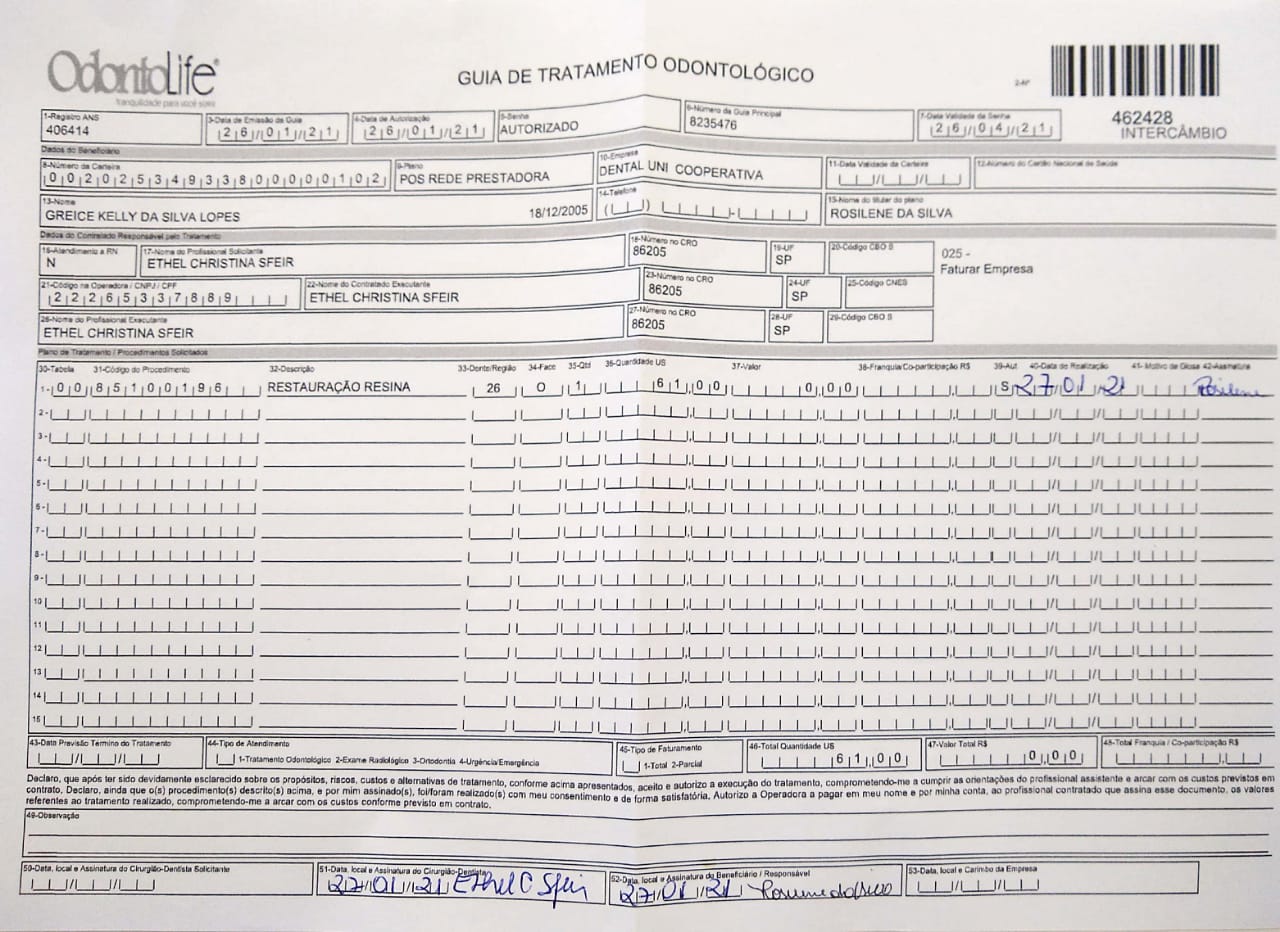 OdontoLife®
tranquilidade para você sorrir
GUIA DE TRATAMENTO ODONTOLÓGICO
462428
INTERCÂMBIO
1-Registro ANS 3-Data de Emissão da Guia 4-Data de Autorização 5-Senha 6-Número da Guia Principal 7-Data Validade da Senha
406414 26/01/21 26/01/21 AUTORIZADO 8235476 26/04/21
Dados do Beneficiário
8-Número da Carteira 9-Plano 10-Empresa 11-Data Validade da Carteira 12-Número do Cartão Nacional de Saúde
00202534933800000102 POS REDE PRESTADORA DENTAL UNI COOPERATIVA
13-Nome 14-Telefone 15-Nome do titular do plano
GREICE KELLY DA SILVA LOPES 18/12/2005 ROSILENE DA SILVA
Dados do Contratado Responsável pelo Tratamento
16-Atendimento a RN 17-Nome do Profissional Solicitante 18-Número no CRO 19-UF 20-Código CBO S
N ETHEL CHRISTINA SFEIR 86205 SP
025 -
Faturar Empresa
21-Código na Operadora / CNPJ / CPF 22-Nome do Contratado Executante 23-Número no CRO 24-UF 25-Código CNES
22265337889 ETHEL CHRISTINA SFEIR 86205 SP
26-Nome do Profissional Executante 27-Número no CRO 28-UF 29-Código CBO S
ETHEL CHRISTINA SFEIR 86205 SP
Plano de Tratamento / Procedimentos Solicitados
30-Tabela 31-Código do Procedimento 32-Descrição 33-Dente/Região 34-Face 35-Qtd 36-Quantidade US 37-Valor 38-Franquia/Co-participação R$ 39-Aut 40-Data de Realização 41- Motivo de Glosa 42-Assinatura
1- 00 85100196 RESTAURAÇÃO RESINA 26 O 1 61,00 0,00 S 27/01/21 Rosilene
2-
3-
4-
5-
6-
7-
8-
9-
10
11
12
13
14
15
43-Data Previsão Término do Tratamento 44-Tipo de Atendimento 45-Tipo de Faturamento 46-Total Quantidade US 47-Valor Total R$ 48-Total Franquia / Co-participação R$
1-Tratamento Odontológico 2-Exame Radiológico 3-Ortodontia 4-Urgência/Emergência 1-Total 2-Parcial 61,00 0,00
Declaro, que após ter sido devidamente esclarecido sobre os propósitos, riscos, custos e alternativas de tratamento, conforme acima apresentados, aceito e autorizo a execução do tratamento, comprometendo-me a cumprir as orientações do profissional assistente e arcar com os custos previstos em
contrato. Declaro, ainda que o(s) procedimento(s) descrito(s) acima, e por mim assinado(s), foi/foram realizado(s) com meu consentimento e de forma satisfatória. Autorizo a Operadora a pagar em meu nome e por minha conta, ao profissional contratado que assina esse documento, os valores
referentes ao tratamento realizado, comprometendo-me a arcar com os custos conforme previsto em contrato.
49-Observação
50-Data, local e Assinatura do Cirurgião-Dentista Solicitante 51-Data, local e Assinatura do Cirurgião-Dentista 52-Data, local e Assinatura do Beneficiário / Responsável 53-Data, local e Carimbo da Empresa
27/01/21 Ethel C Sfeir 27/01/21 Rosilene da Silva